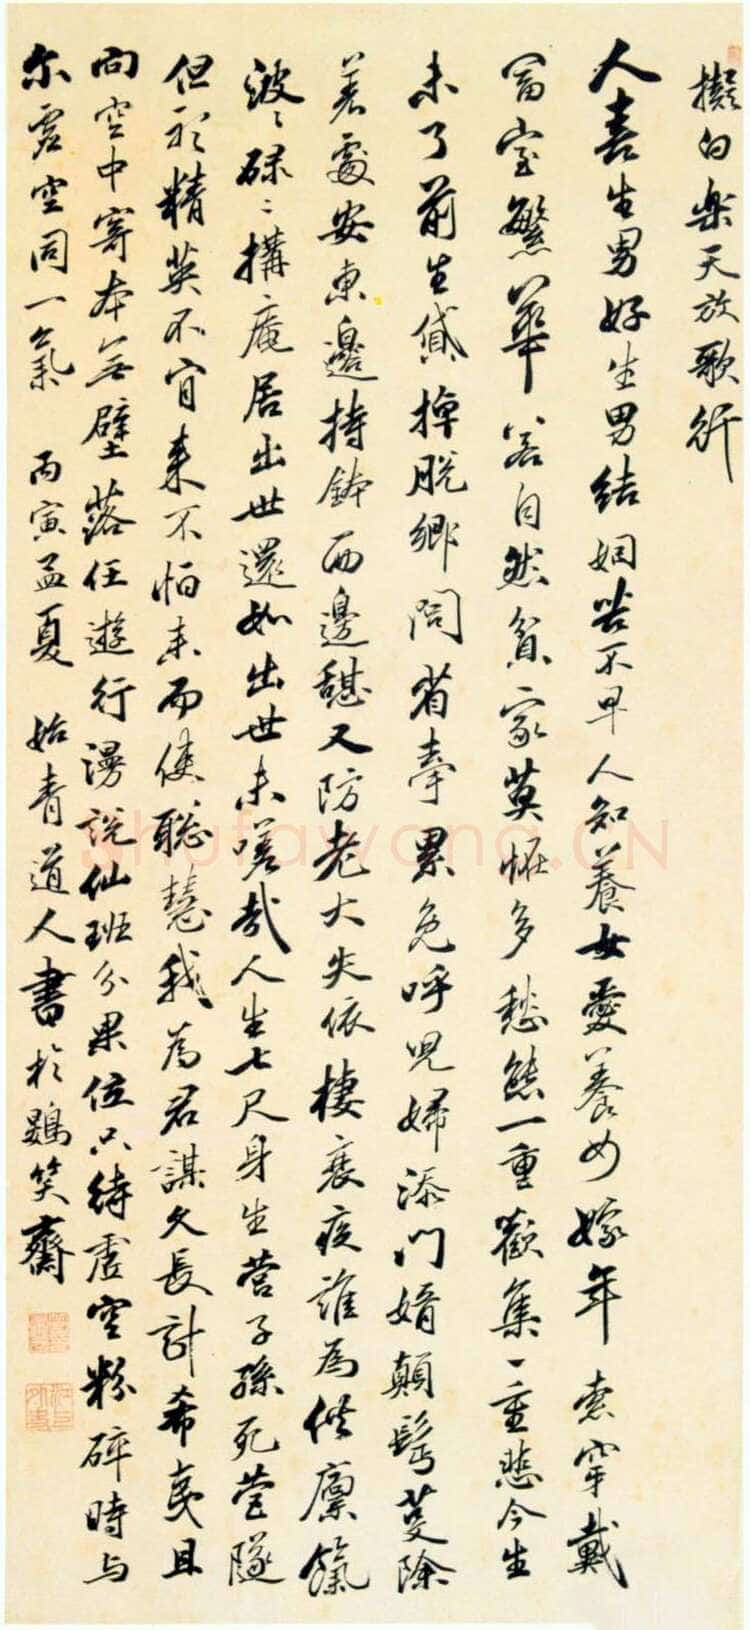 擬白樂天放歌行
人喜生男好生男結姻苦不早人知養女愛養女嫁年索穿戴
富室繁華若自然貧家莫怪多愁態一重歡集一重悲今生
未了前生貸掉脫鄉問省牽累免呼兒婦添門婿顛髩蔓除
著處安東邊持鉢西邊憩又防老大失依棲衰疾誰為供廩餼
波〻碌〻搆庵居出世還如出世未嗟哉人生七尺身生營子孫死營隧
但精英不肎來不怕而使聰慧我為君謀久長計希夷且
向空中寄本無壁落任遊行漫說仙班分果位只待虛空粉碎時与
尔虛空同一氣 丙寅孟夏 始青道人書於鷃笑齋
shufawang.CN